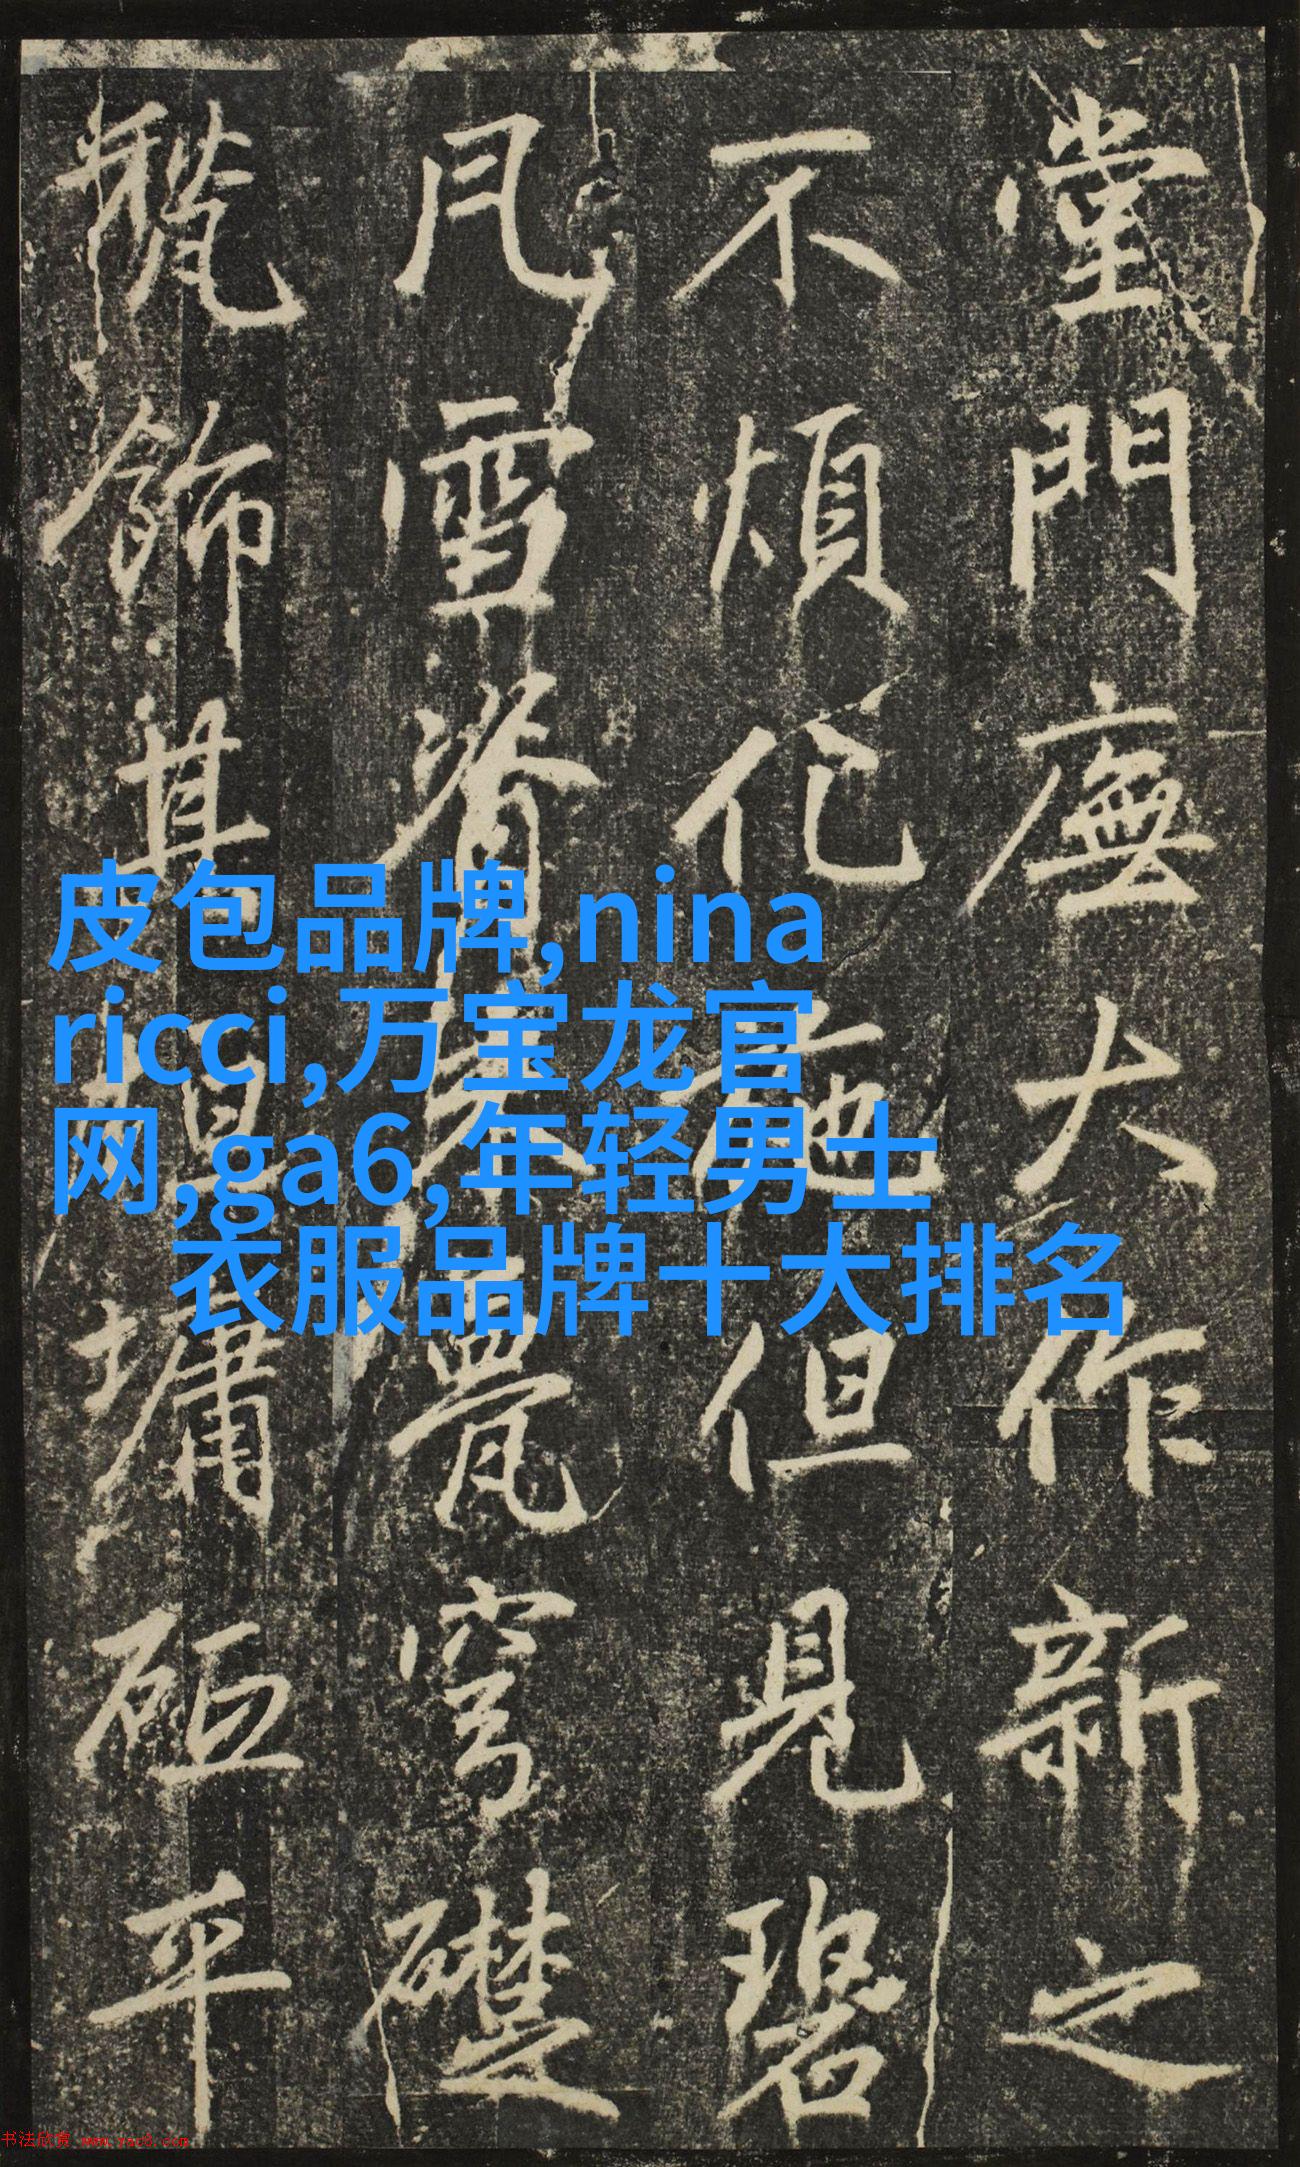 堂門廡大作新之
不煩化施但見碧
風雪脊
甍穹礎
飾其垣墉砥平
皮包品牌,nina
ricci,万宝龙官
网,ga6,年轻男士
衣服品牌十大排名
书法欣赏 www.yac8.com